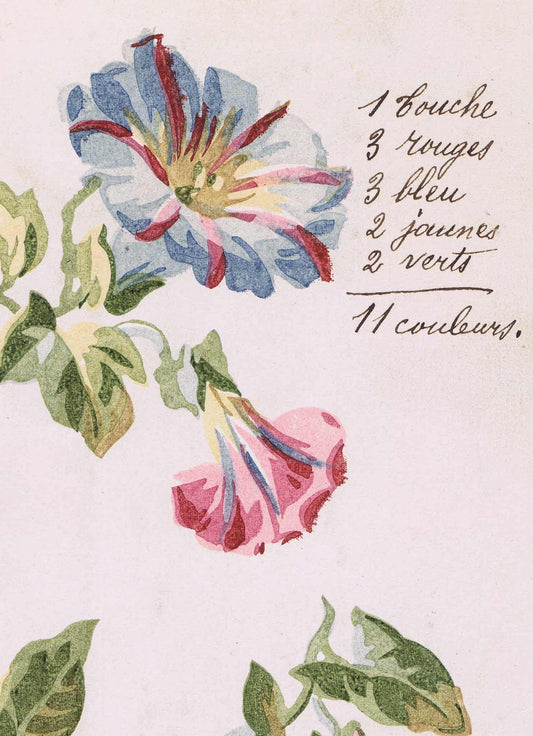 1 bouche
3 rouges
3 bleu
2 jaunes
2 verts
11 couleurs.